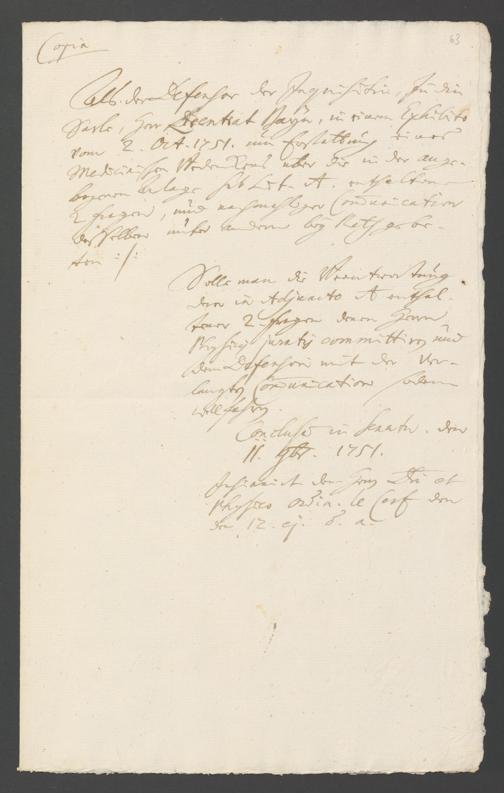 63
Copia
Als der Defensor der Inquisitin, in der
Sache, Herr Licentiat in einem Exhibito
vom 2. Oct. 1751. um Erstattung eines
Medicinischen über die in der ange-
bogenen Anlage sub Lit. A. enthaltene
2 fragen, und nachmahlige Communication
desselben unter andern bey Rath gebe-
ten :/:
Solle man die Beantwortung
derer in Adjuncto A enthal-
tener 2. fragen denen Herren
Physicis juratis committiren und
dem Defensori mit der Ver-
langten Communication
willfahren.
Conclusum in Senatu. den
11. 1751.
Insinuirt dem Herrn et
Physico ordin. le Cerf den
den 12. ej. a.